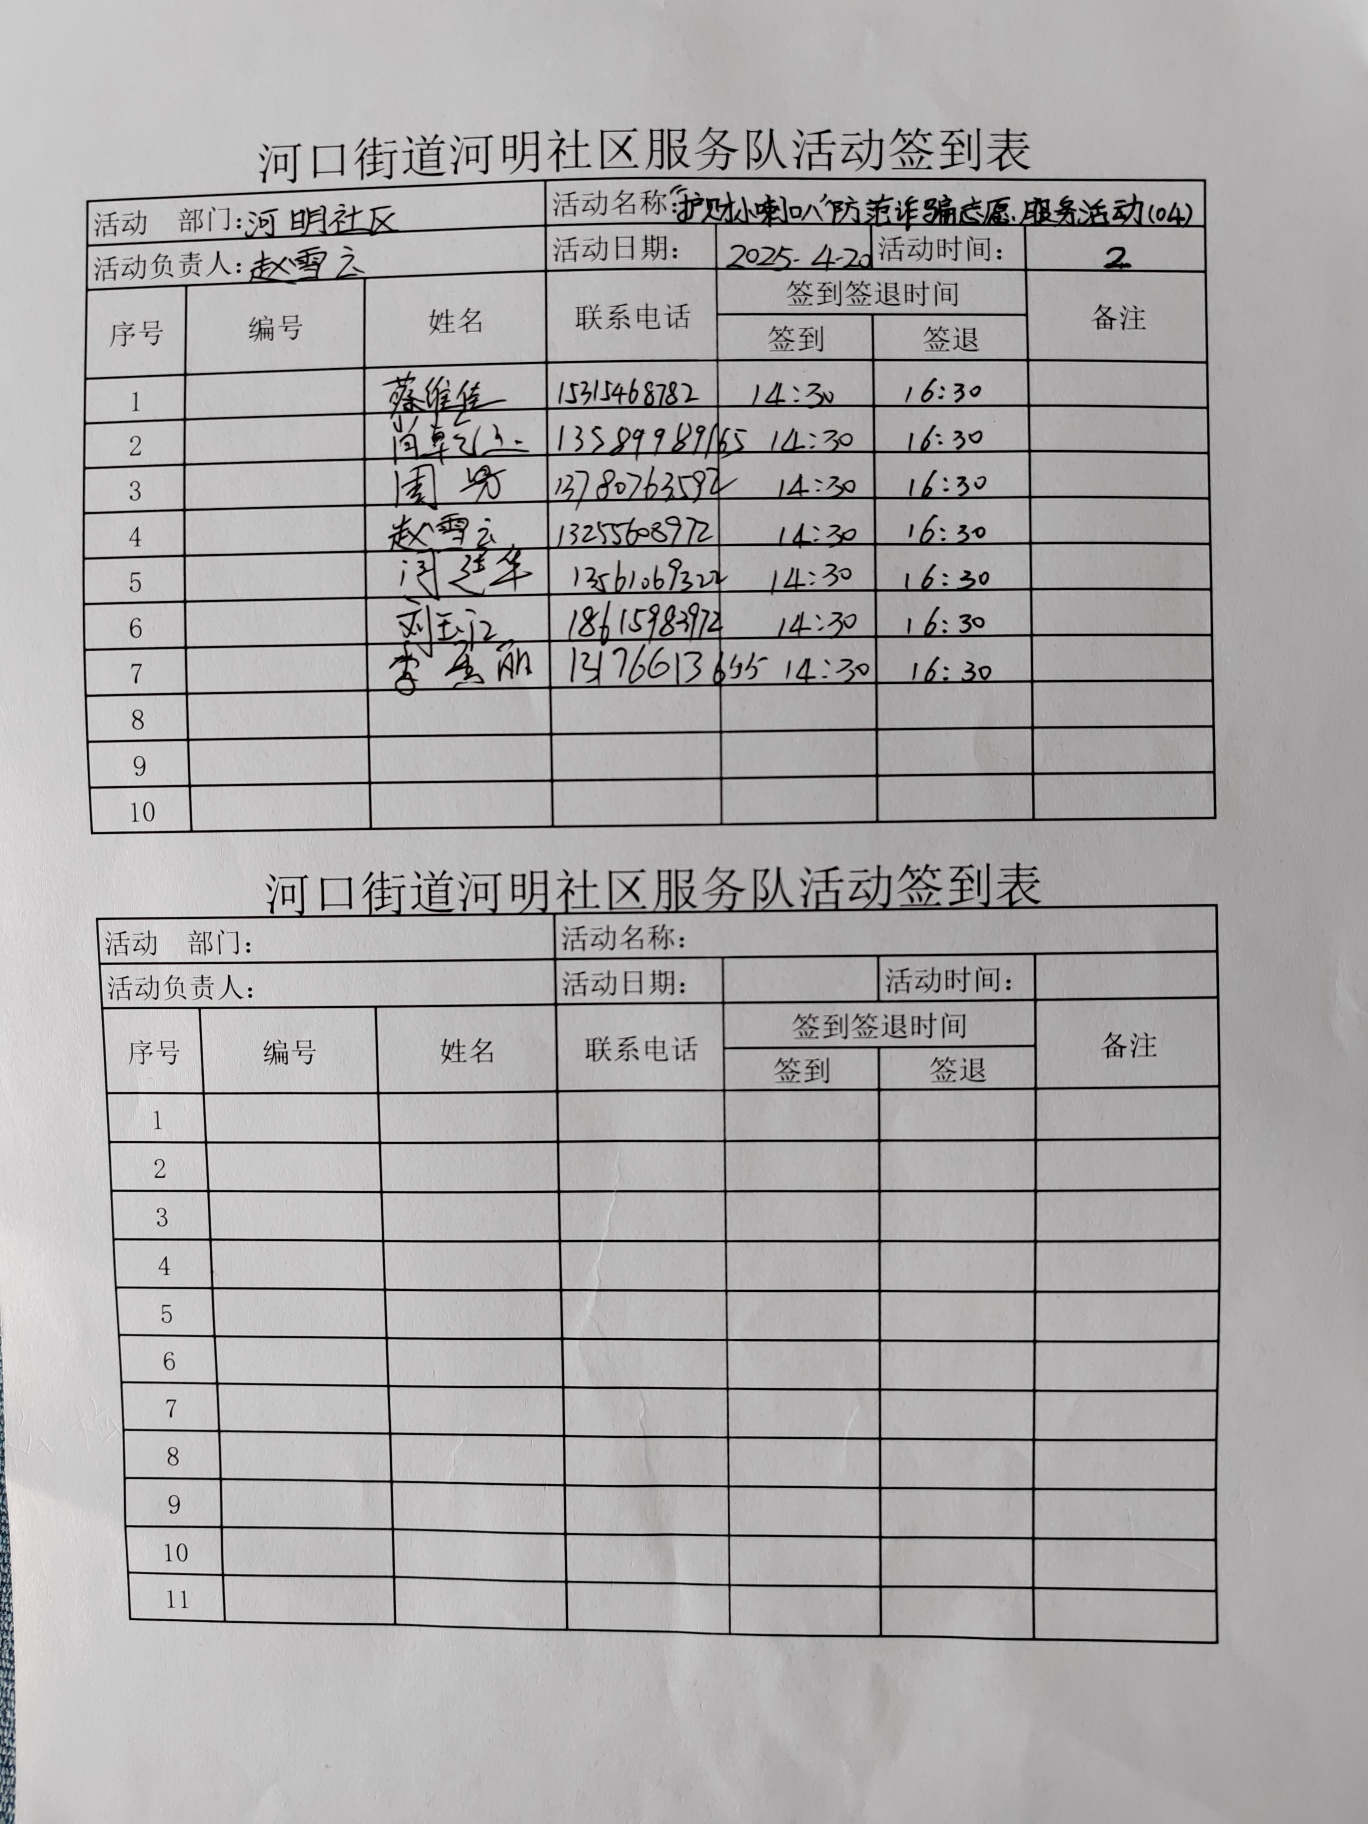 河口街道河明社区服务队活动签到表
活动 部门:河明社区 活动名称:"护财小喇叭"防范诈骗志愿服务活动(04)
活动负责人:赵雪云 活动日期: 2025-4-20 活动时间: 2
序号 编号 姓名 联系电话 签到签退时间 备注
签到 签退
1 蔡维佳 15315468782 14:30 16:30
2 13589989165 14:30 16:30
3 周 13780763592 14:30 16:30
4 赵雪云 13255608972 14:30 16:30
5 闫建华 13561069322 14:30 16:30
6 刘玉江 18615983972 14:30 16:30
7 李 丽 13176613655 14:30 16:30
8
9
10
河口街道河明社区服务队活动签到表
活动 部门: 活动名称:
活动负责人: 活动日期: 活动时间:
序号 编号 姓名 联系电话 签到签退时间 备注
签到 签退
1
2
3
4
5
6
7
8
9
10
11